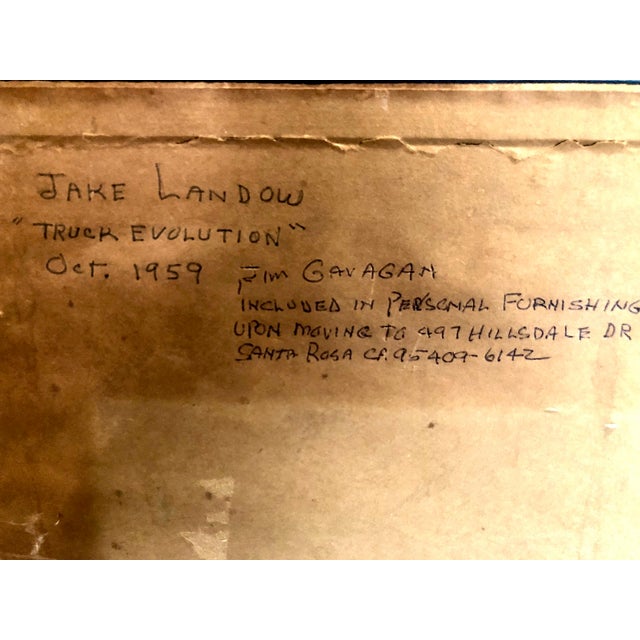 JAKE LANDOW
"TRUCK EVOLUTION"
Oct. 1959
Jim GAVAGAN
INCLUDED IN PERSONAL FURNISHING
UPON MOVING TO 497 HILLSDALE DR
SANTA ROSA CA. 95409-6142